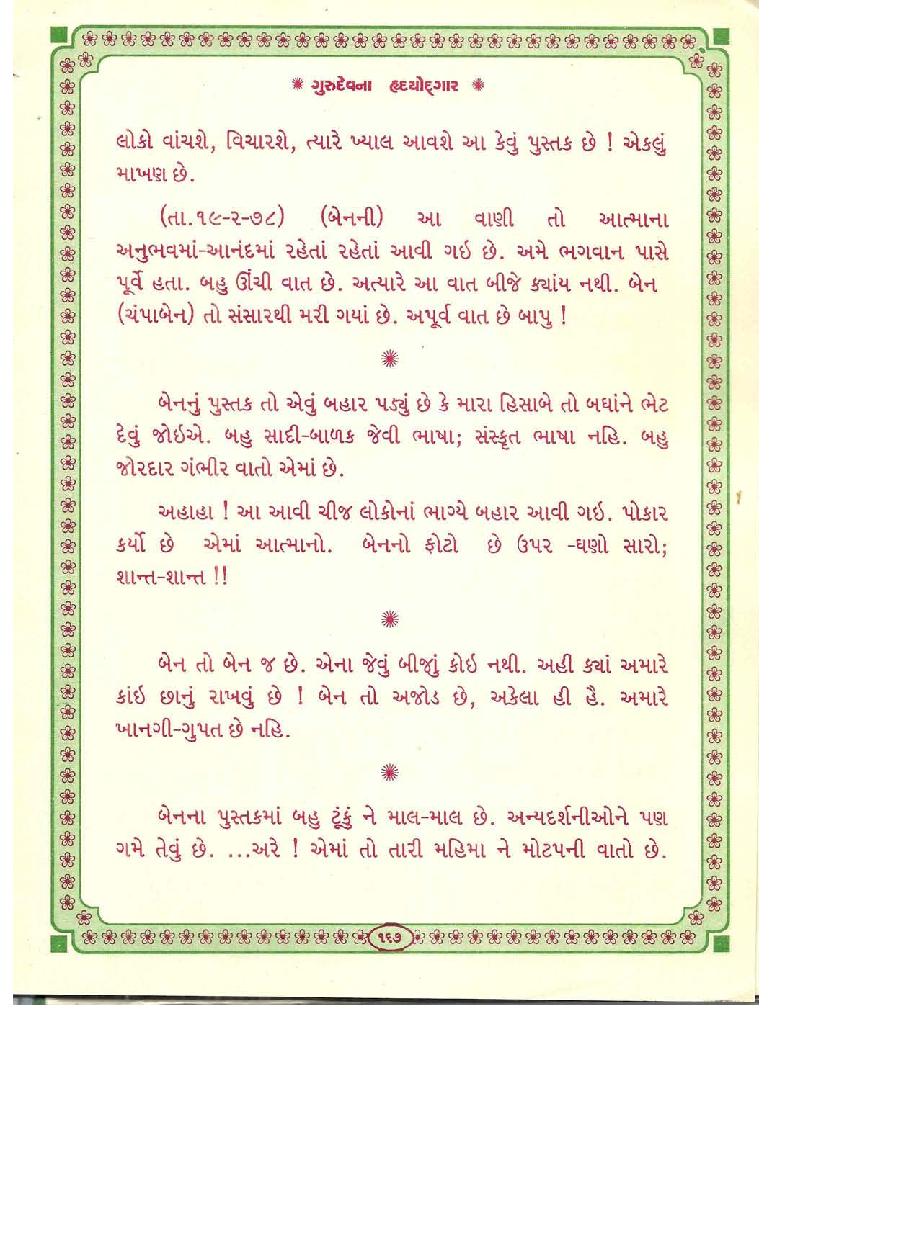 ગુરુદેવના હૃદયોદ્‌ગાર
લોકો વાંચશે, વિચારશે, ત્યારે ખ્યાલ આવશે આ કેવું પુસ્તક છે ! એકલું
માખણ છે.
(તા.૧૯-૨-૭૮) (બેનની) આ વાણી તો આત્માના
અનુભવમાં-આનંદમાં રહેતાં રહેતાં આવી ગઇ છે. અમે ભગવાન પાસે
પૂર્વે હતા. બહુ ઊંચી વાત છે. અત્યારે આ વાત બીજે ક્યાંય નથી. બેન
(ચંપાબેન) તો સંસારથી મરી ગયાં છે. અપૂર્વ વાત છે બાપુ !
બેનનું પુસ્તક તો એવું બહાર પડ્યું છે કે મારા હિસાબે તો બધાંને ભેટ
દેવું જોઇએ. બહુ સાદી-બાળક જેવી ભાષા; સંસ્કૃત ભાષા નહિ. બહુ
જોરદાર ગંભીર વાતો એમાં છે.
અહાહા ! આ આવી ચીજ લોકોનાં ભાગ્યે બહાર આવી ગઇ. પોકાર
કર્યો છે એમાં આત્માનો. બેનનો ફોટો છે ઉપર -ઘણો સારો;
શાન્ત-શાન્ત !!
બેન તો બેન જ છે. એના જેવું બીજું કોઇ નથી. અહી ક્યાં અમારે
કાંઇ છાનું રાખવું છે ! બેન તો અજોડ છે, અકેલા હી હૈ. અમારે
ખાનગી-ગુપત છે નહિ.
બેનના પુસ્તકમાં બહુ ટૂંકું ને માલ-માલ છે. અન્યદર્શનીઓને પણ
ગમે તેવું છે. ...અરે ! એમાં તો તારી મહિમા ને મોટપની વાતો છે.
૧૬૭